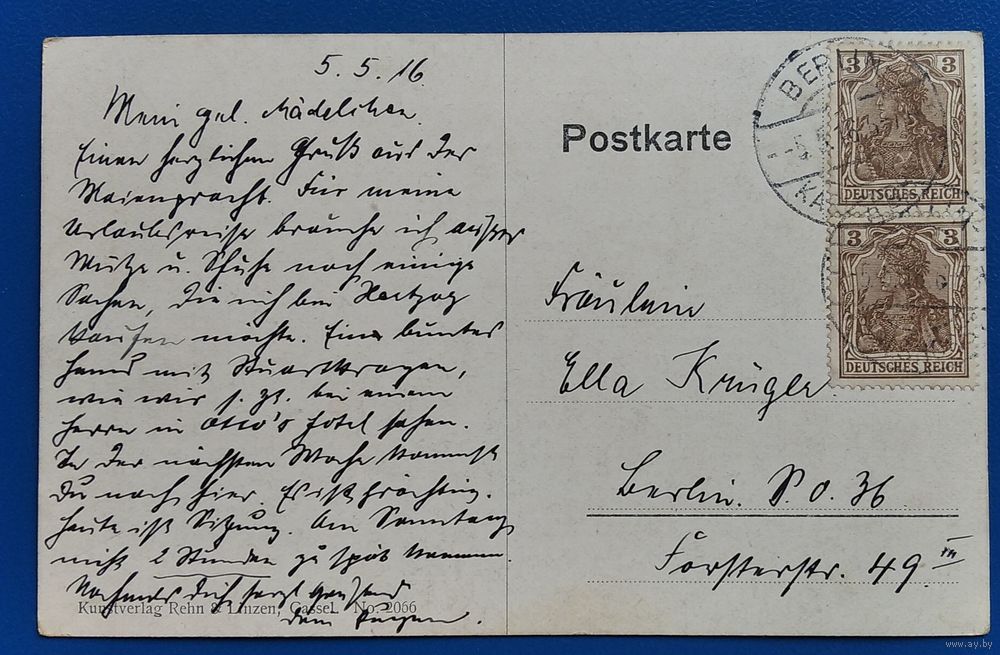 5. 5. 16
Mein gel. Mädelchen.
Einen herzlichen Gruß aus der
Maienpracht. Für meine
Urlaubsreise brauche ich außer
Mütze u. Schuhe noch einige
Sachen, die ich bei Hertzog
kaufen möchte. Ein buntes
Hemd mit Stuartkragen,
wie wir s. Zt. bei einem
Herrn in Otto's Hotel sahen.
In der nächsten Woche kommst
Du nach hier. Es ist prächtig.
Heute ist Sitzung. Am Sonntag
nicht 2 Stunden zu spät kommen
Nochmals Dich herzl grüßend
Dein
Kunstverlag Rehn & Linzen, Cassel. No. 2066
Postkarte
BERLIN
3 3
DEUTSCHES REICH
3 3
DEUTSCHES REICH
Fräulein
Ella Krüger
Berlin. S.O. 36
Forsterstr. 49 III
www.ay.by